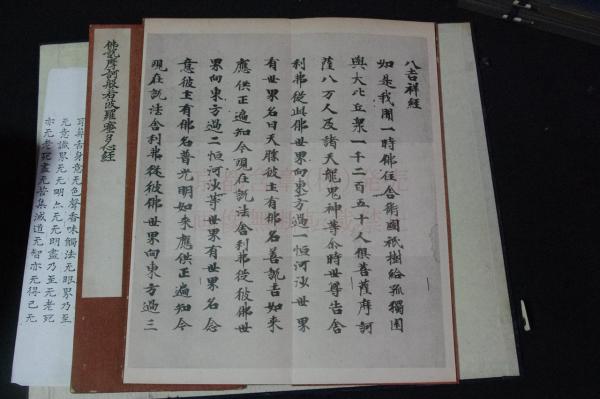 八吉祥經
如是我聞一時佛住舍衛國祇樹給孤獨園
與大比丘衆一千二百五十人俱菩薩摩訶
薩八万人及諸天龍鬼神等尒時世尊告舍
利弗從此佛世界向東方過一恒河沙世界
有世界名曰天勝彼土有佛名善說吉如來
應供正遍知今現在說法舍利弗從彼佛世
界向東方過二恒河沙等世界有世界名念
意彼土有佛名普光明如來應供正遍知今
現在說法舍利弗從彼佛世界向東方過三
佛說摩訶般若波羅蜜多心經
耳鼻舌身意无色聲香味觸法无眼界乃至
无意識界无无明亦无无明盡乃至无老死
亦无老死盡无苦集滅道无智亦无得已无